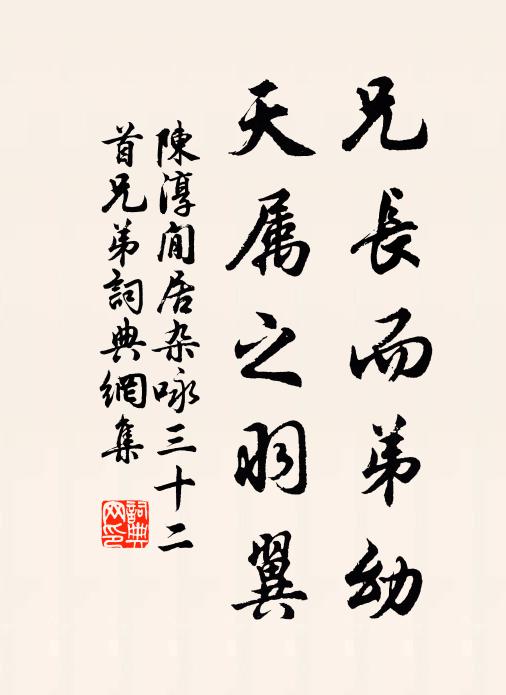 兄長而弟幼
天属之羽翼
陳淳閒居杂咏三十二
首兄弟詞典網集
詞典
网印